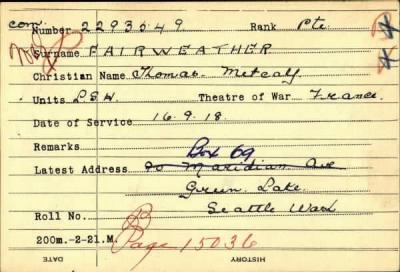 com.
Number 2293549 Rank Pte
Surname FAIRWEATHER
Christian Name Thomas Metcalf
Units L.S.H. Theatre of War France
Date of Service 16.9.18
Remarks
Box 69
Latest Address 90 Maridian Ave
Green Lake
Seattle Wash
Roll No.
200m.-2-21.M. Page 15036
DATE HISTORY